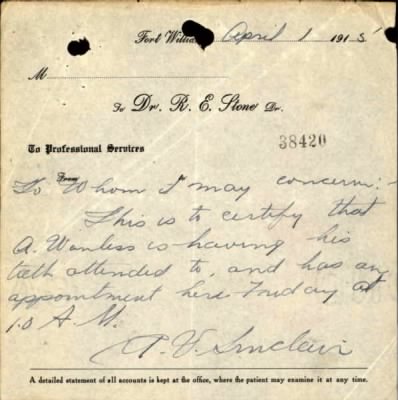 Fort William April 1 1915
M
To Dr. R. E. Stone Dr.
38420
To Professional Services
From
To Whom I may concern:-
This is to certify that
A. Wanless is having his
teeth attended to, and has an
appointment here Friday at
10 A.M.
V. Sinclair
A detailed statement of all accounts is kept at the office, where the patient may examine it at any time.